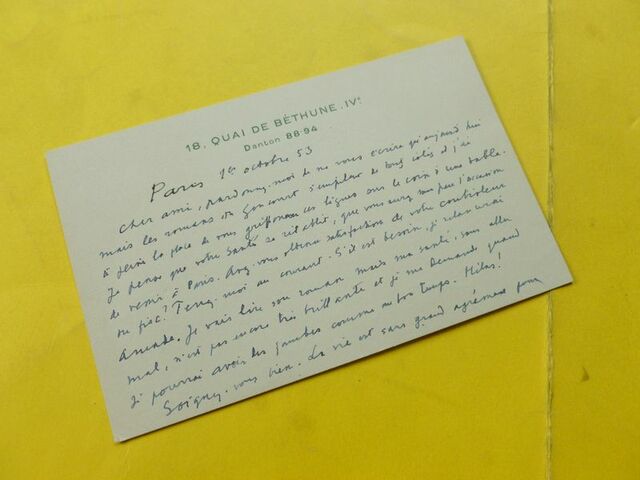 18, QUAI DE BÉTHUNE. IVᵉ
Danton 88-94
Paris 1er octobre 53
Cher ami, pardonnez-moi de ne vous écrire qu'aujourd'hui
mais les romans du Goncourt s'empilent de tous côtés et j'ai
à peine la place de vous griffonner ces lignes sur le coin d'une table.
Je pense que votre santé se rétablit, que vous aurez sous peu l'occasion
de venir à Paris. Avez-vous obtenu satisfaction de votre contrôleur
du fisc? Tenez-moi au courant. S'il est besoin, je relancerai
Je vais lire son roman mais ma santé, sans aller
mal, n'est pas encore très brillante et je me demande quand
je pourrai avoir les jambes comme au bon temps. Hélas!
Soignez-vous bien. La vie est sans grand agrément pour